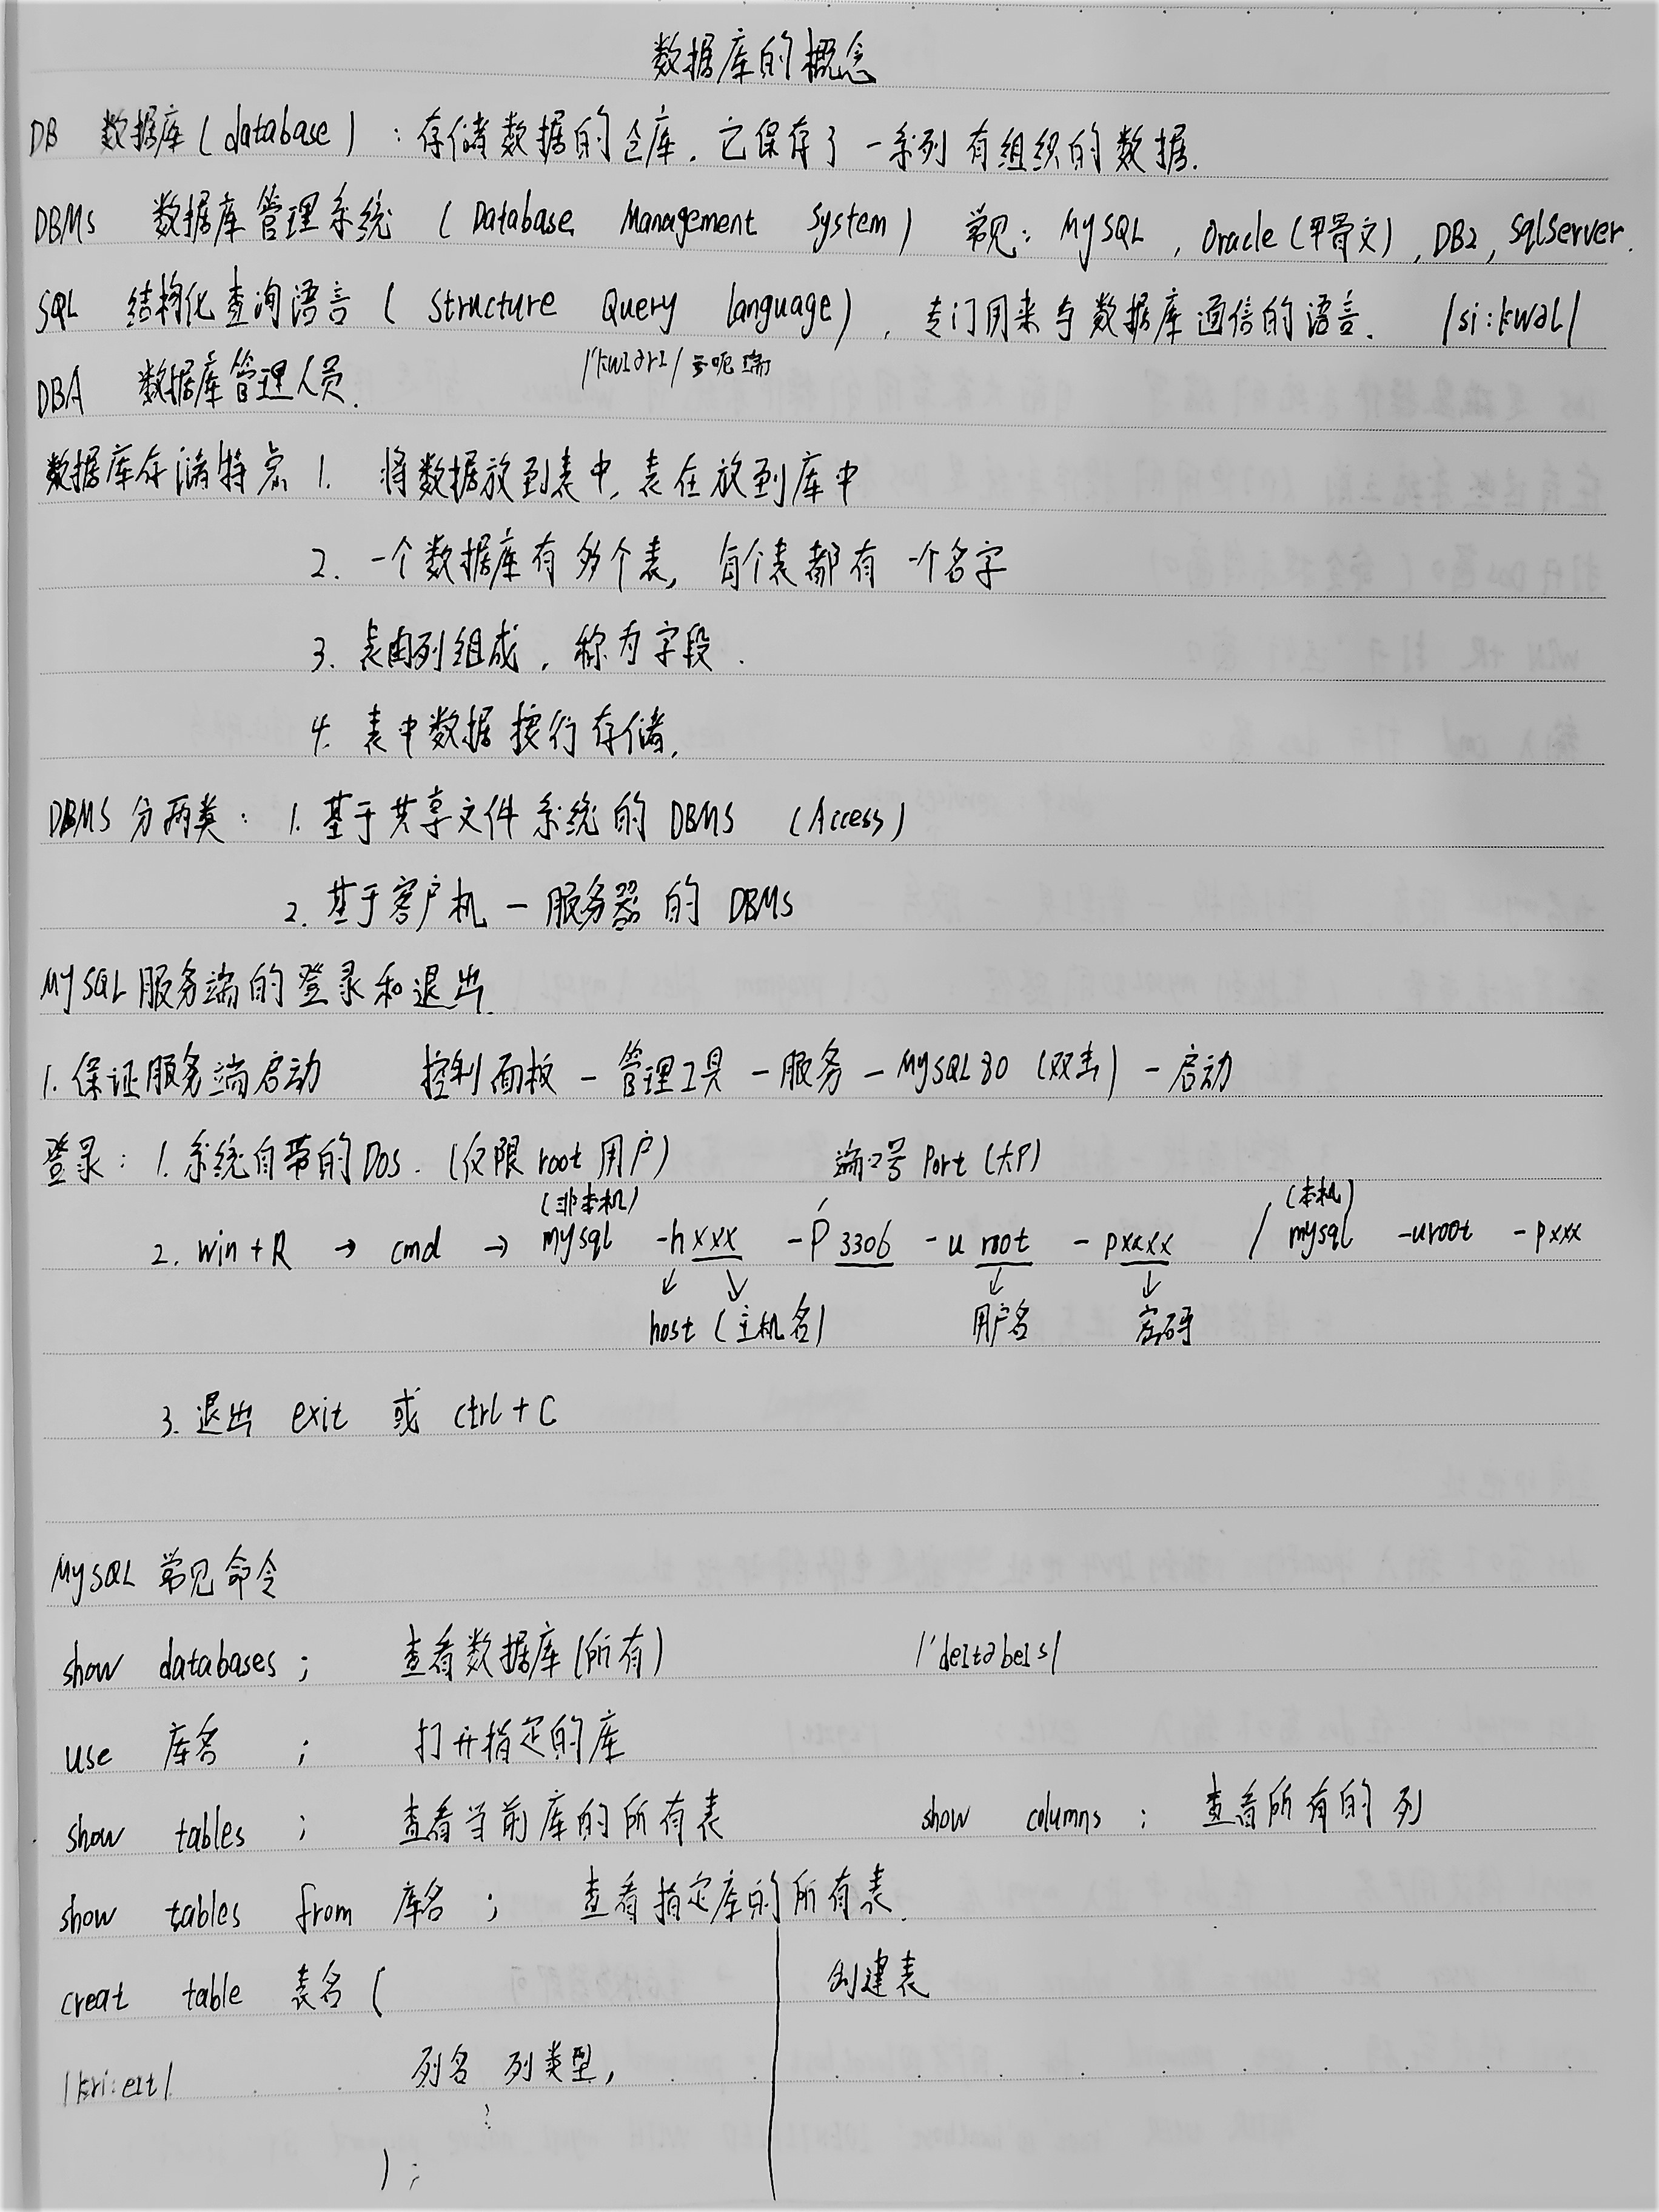 数据库的概念
DB 数据库(database):存储数据的仓库.它保存了一系列有组织的数据.
DBMS 数据库管理系统 (Database Management System) 常见:MySQL,Oracle(甲骨文),DB2,SqlServer.
SQL 结构化查询语言(Structure Query language),专门用来与数据库通信的语言. /si:kwəl/
/'kwɪərɪ/
DBA 数据库管理人员.
数据库存储特点 1. 将数据放到表中,表在放到库中
2. 一个数据库有多个表,每个表都有一个名字
3. 表由列组成,称为字段.
4. 表中数据按行存储.
DBMS分两类: 1.基于共享文件系统的DBMS (Access)
2.基于客户机-服务器的DBMS
MySQL服务端的登录和退出.
1.保证服务端启动 控制面板-管理工具-服务-MySQL80(双击)-启动
登录:1.系统自带的Dos.(仅限root用户) 端口号Port(大P)
(非本机) (本机)
2. win+R → cmd → mysql -hxxx -P 3306 -u root -pxxxx / mysql -uroot -pxxx
host(主机名) 用户名 密码
3. 退出 exit 或 ctrl+C
MySQL 常见命令
show databases; 查看数据库(所有) /'deɪtəbeɪs/
use 库名 ; 打开指定的库
show tables ; 查看当前库的所有表 show columns ; 查看所有的列
show tables from 库名 ; 查看指定库的所有表.
creat table 表名( 创建表
/kri:eɪt/ 列名 列类型,
);